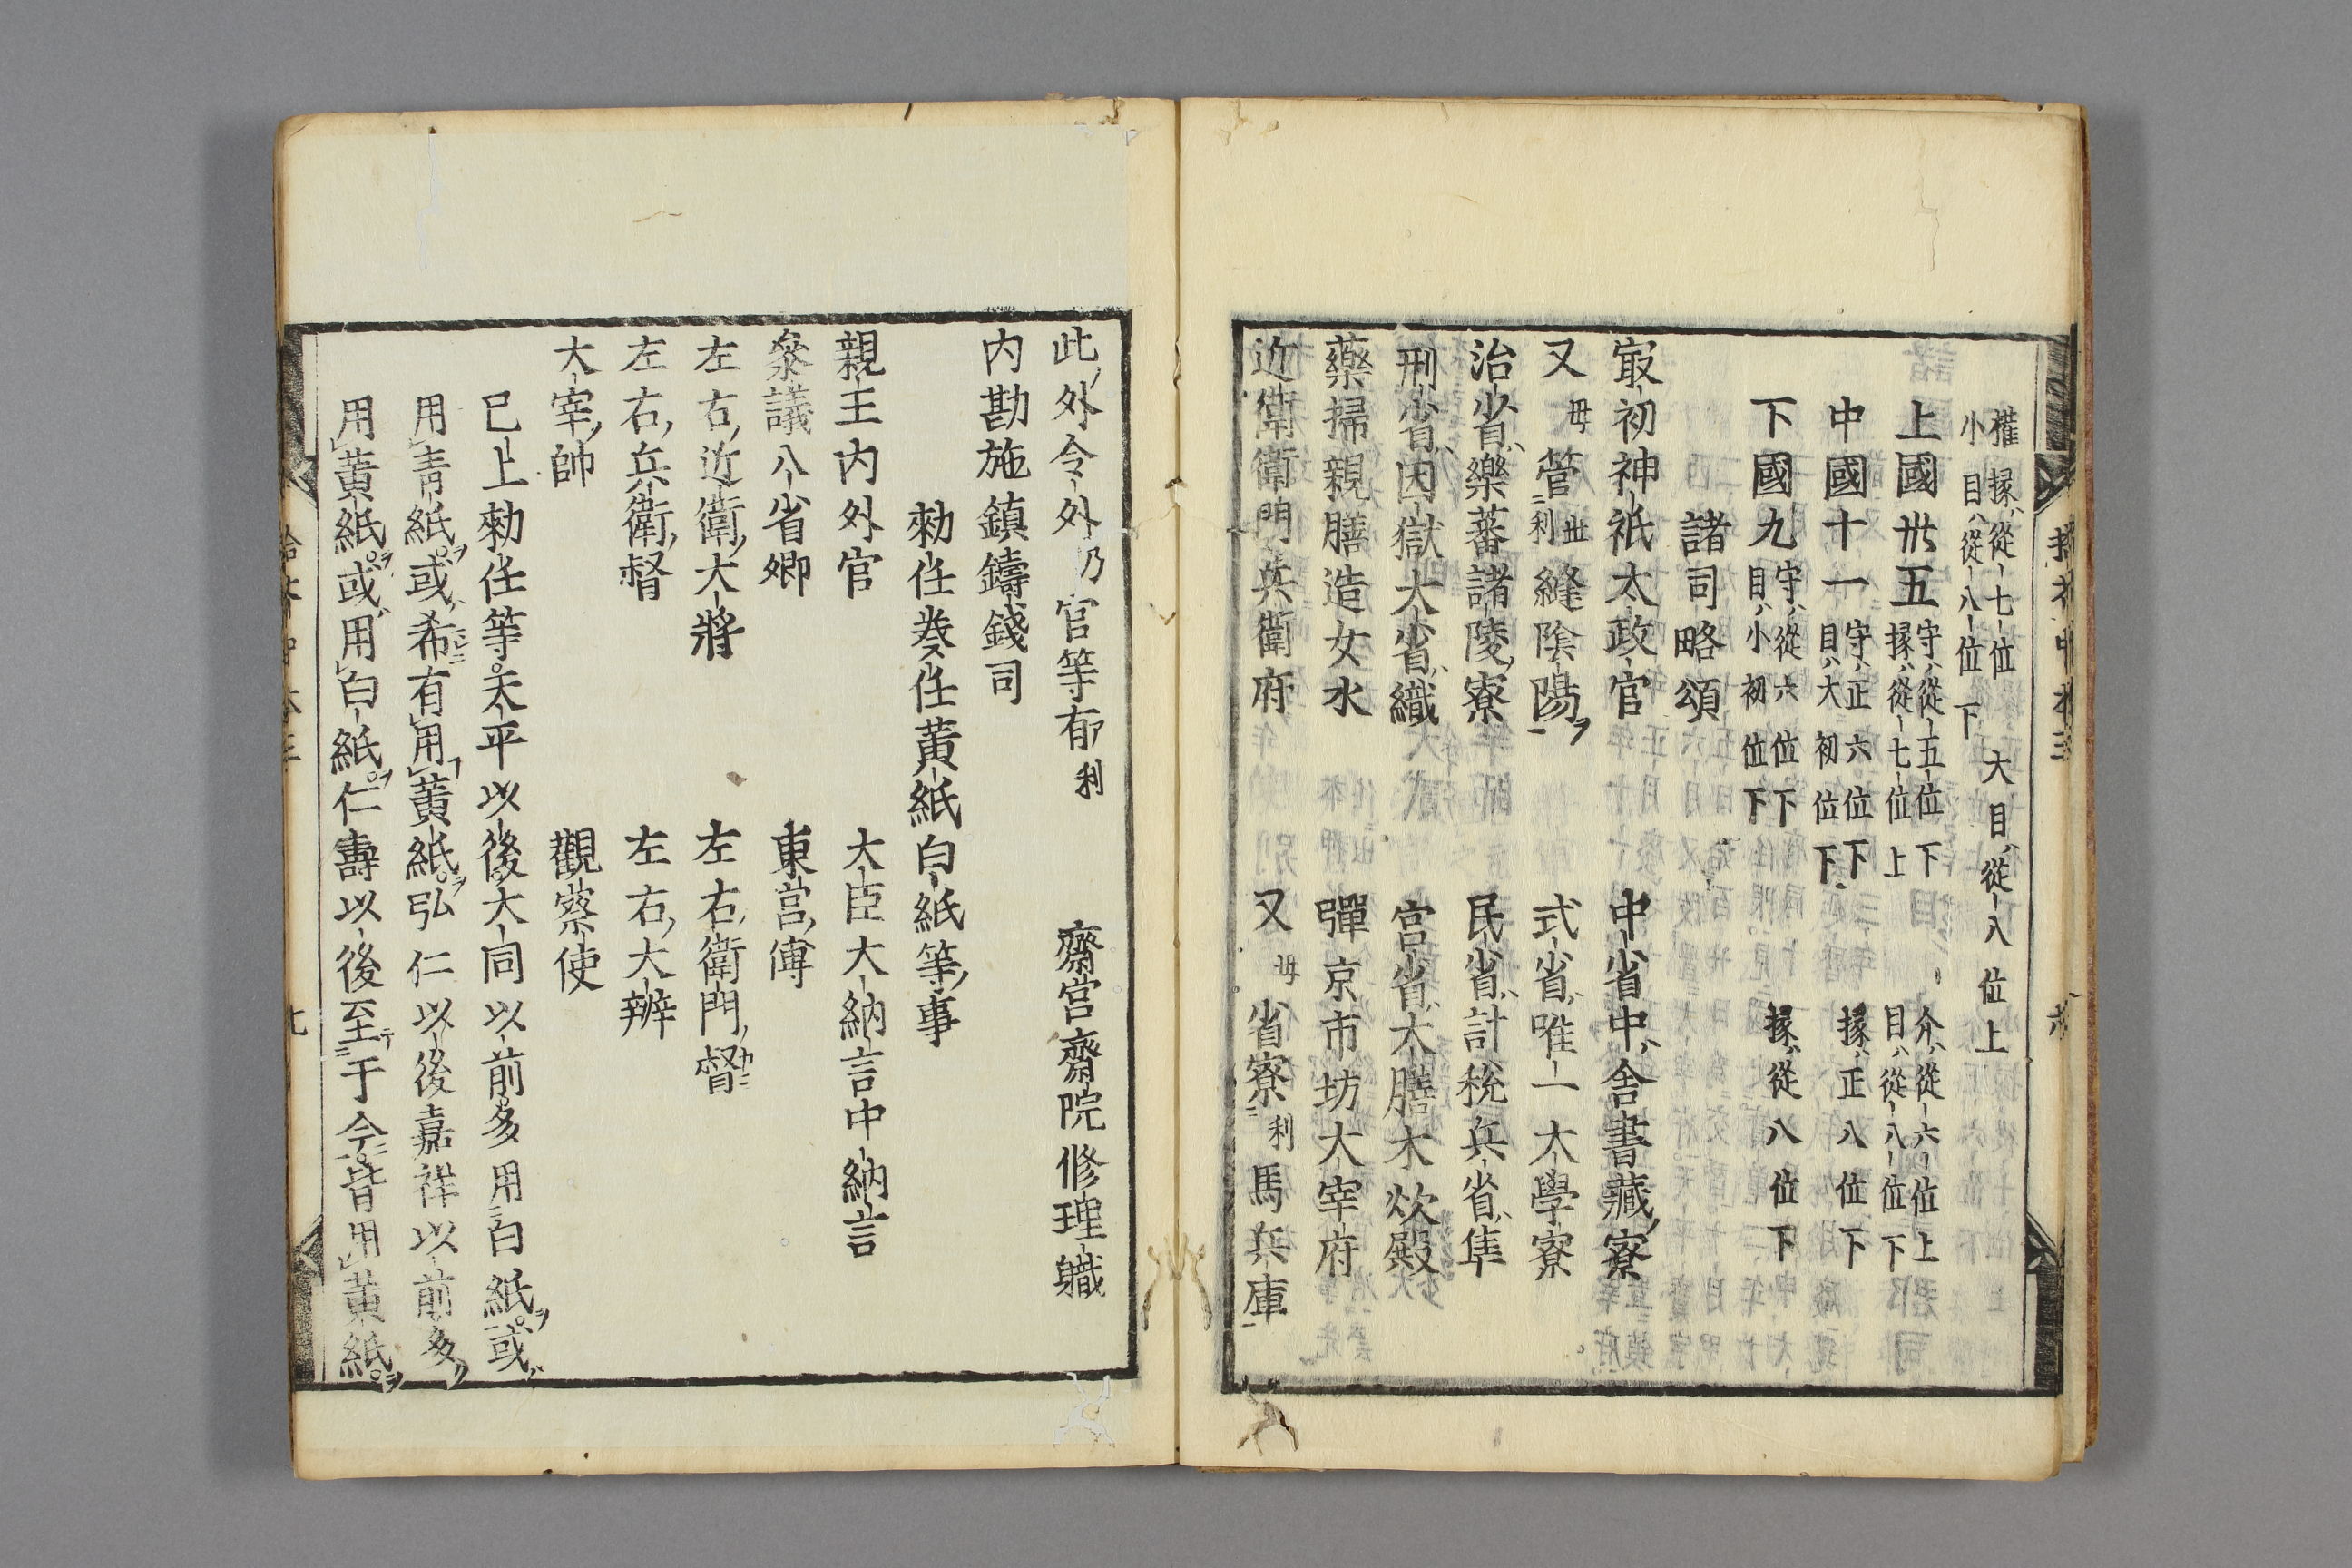 權掾ハ從七位 大目ハ從八位上
小目ハ從八位下
上國卅五 守ハ從五位下 介ハ從六位上
掾ハ從七位上 目ハ從八位下
中國十一 守ハ正六位下 掾ハ正八位下
目ハ大初位下
下國九 守ハ從六位下 掾ハ從八位下
目ハ小初位下
諸司略頌
㝡初神祇太政官 中省中ハ舍書藏寮
又毋管世利縫陰陽 式省ハ唯一大學寮
治省ハ樂蕃諸陵寮 民省ハ計稅兵省ハ隼
刑省ハ因獄大省ハ織 宮省ハ大膳木炊殿
藥掃親膳造女水 彈京市坊大宰府
近衛衛門兵衛府 又毋省寮利馬兵庫
此外令外乃官等有利 齋宮齋院修理職
内勘施鎮鑄錢司
勅任奏任黃紙白紙等事
親王内外官 大臣大納言中納言
叅議八省卿 東宮傅
左右近衛大將 左右衛門督
左右兵衛督 左右大辨
大宰帥 觀察使
已上勅任等天平以後大同以前多用白紙ヲ或ハ
用青紙ヲ或ハ希有用黃紙ヲ弘仁以後嘉祥以前多ク
用黃紙ヲ或ハ用白紙ヲ仁壽以後至于今皆用黃紙ヲ